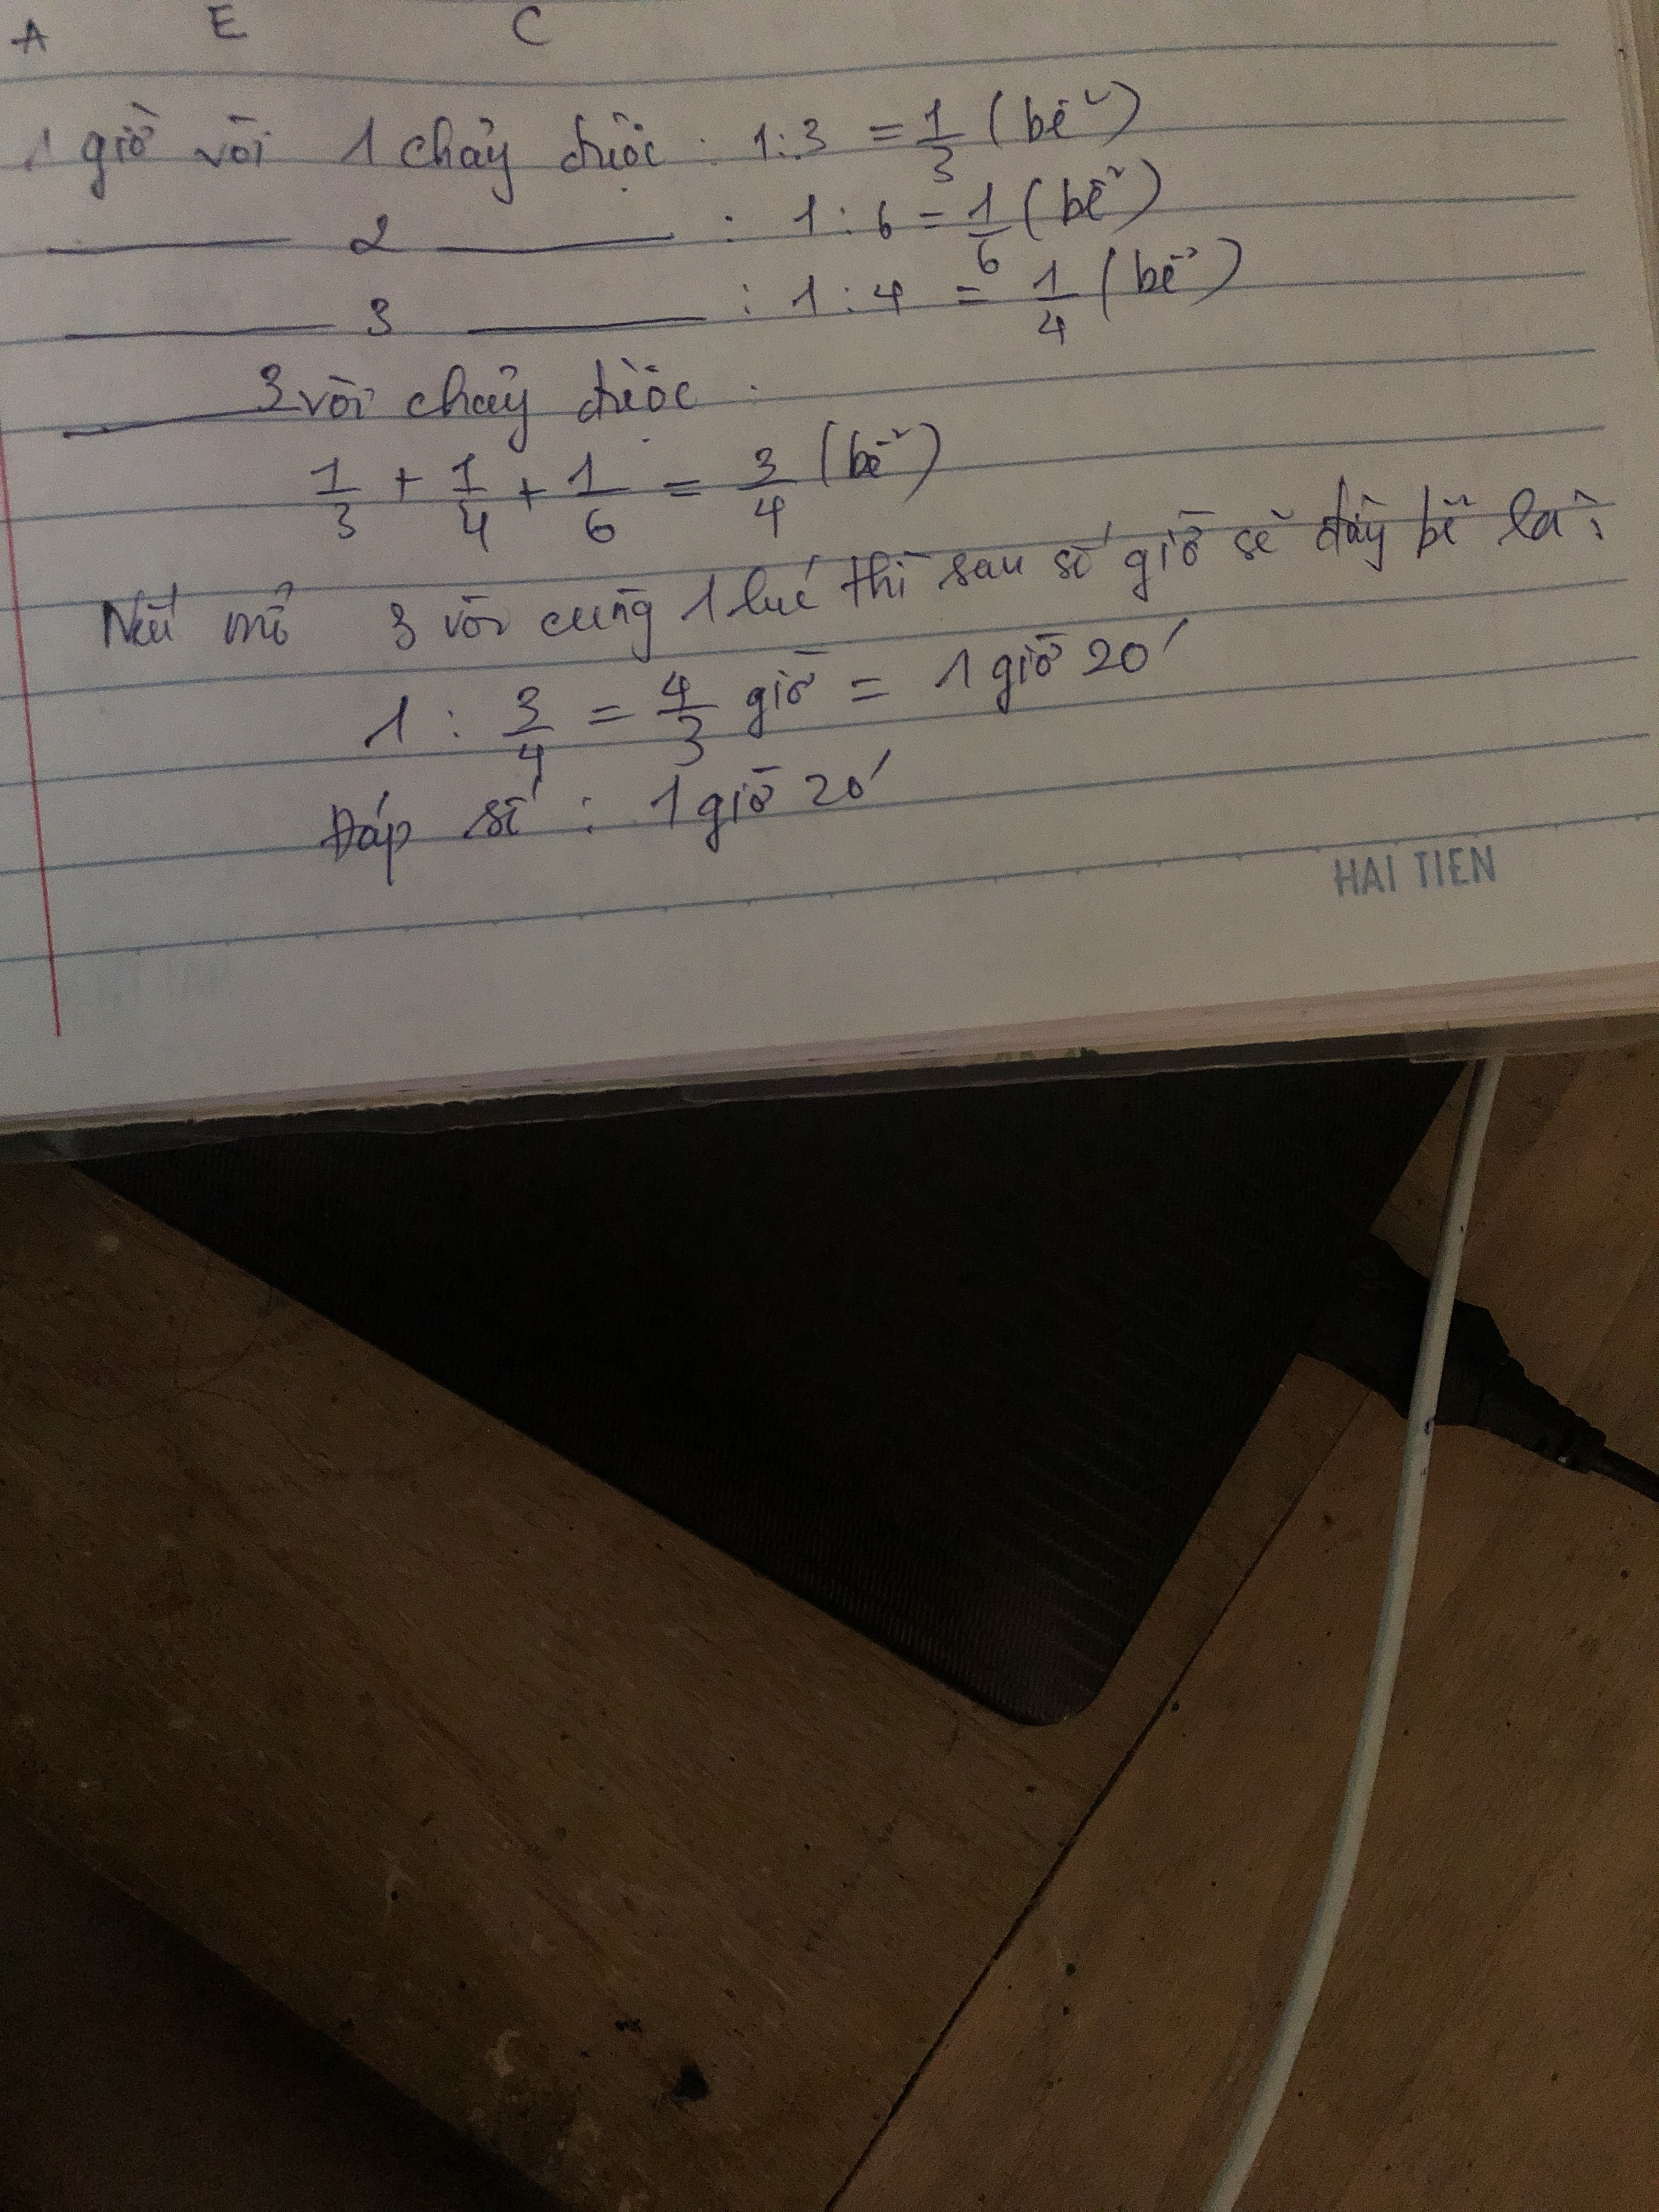 A E C
1 giờ vòi 1 chảy được : 1:3 = 1/3 (bể)
——— 2 ——— : 1:6 = 1/6 (bể)
——— 3 ——— : 1:4 = 1/4 (bể)
——— 3 vòi chảy được :
1/3 + 1/4 + 1/6 = 3/4 (bể)
Nếu mở 3 vòi cùng 1 lúc thì sau số giờ sẽ đầy bể là:
1 : 3/4 = 4/3 giờ = 1 giờ 20'
Đáp số : 1 giờ 20'
HAI TIEN